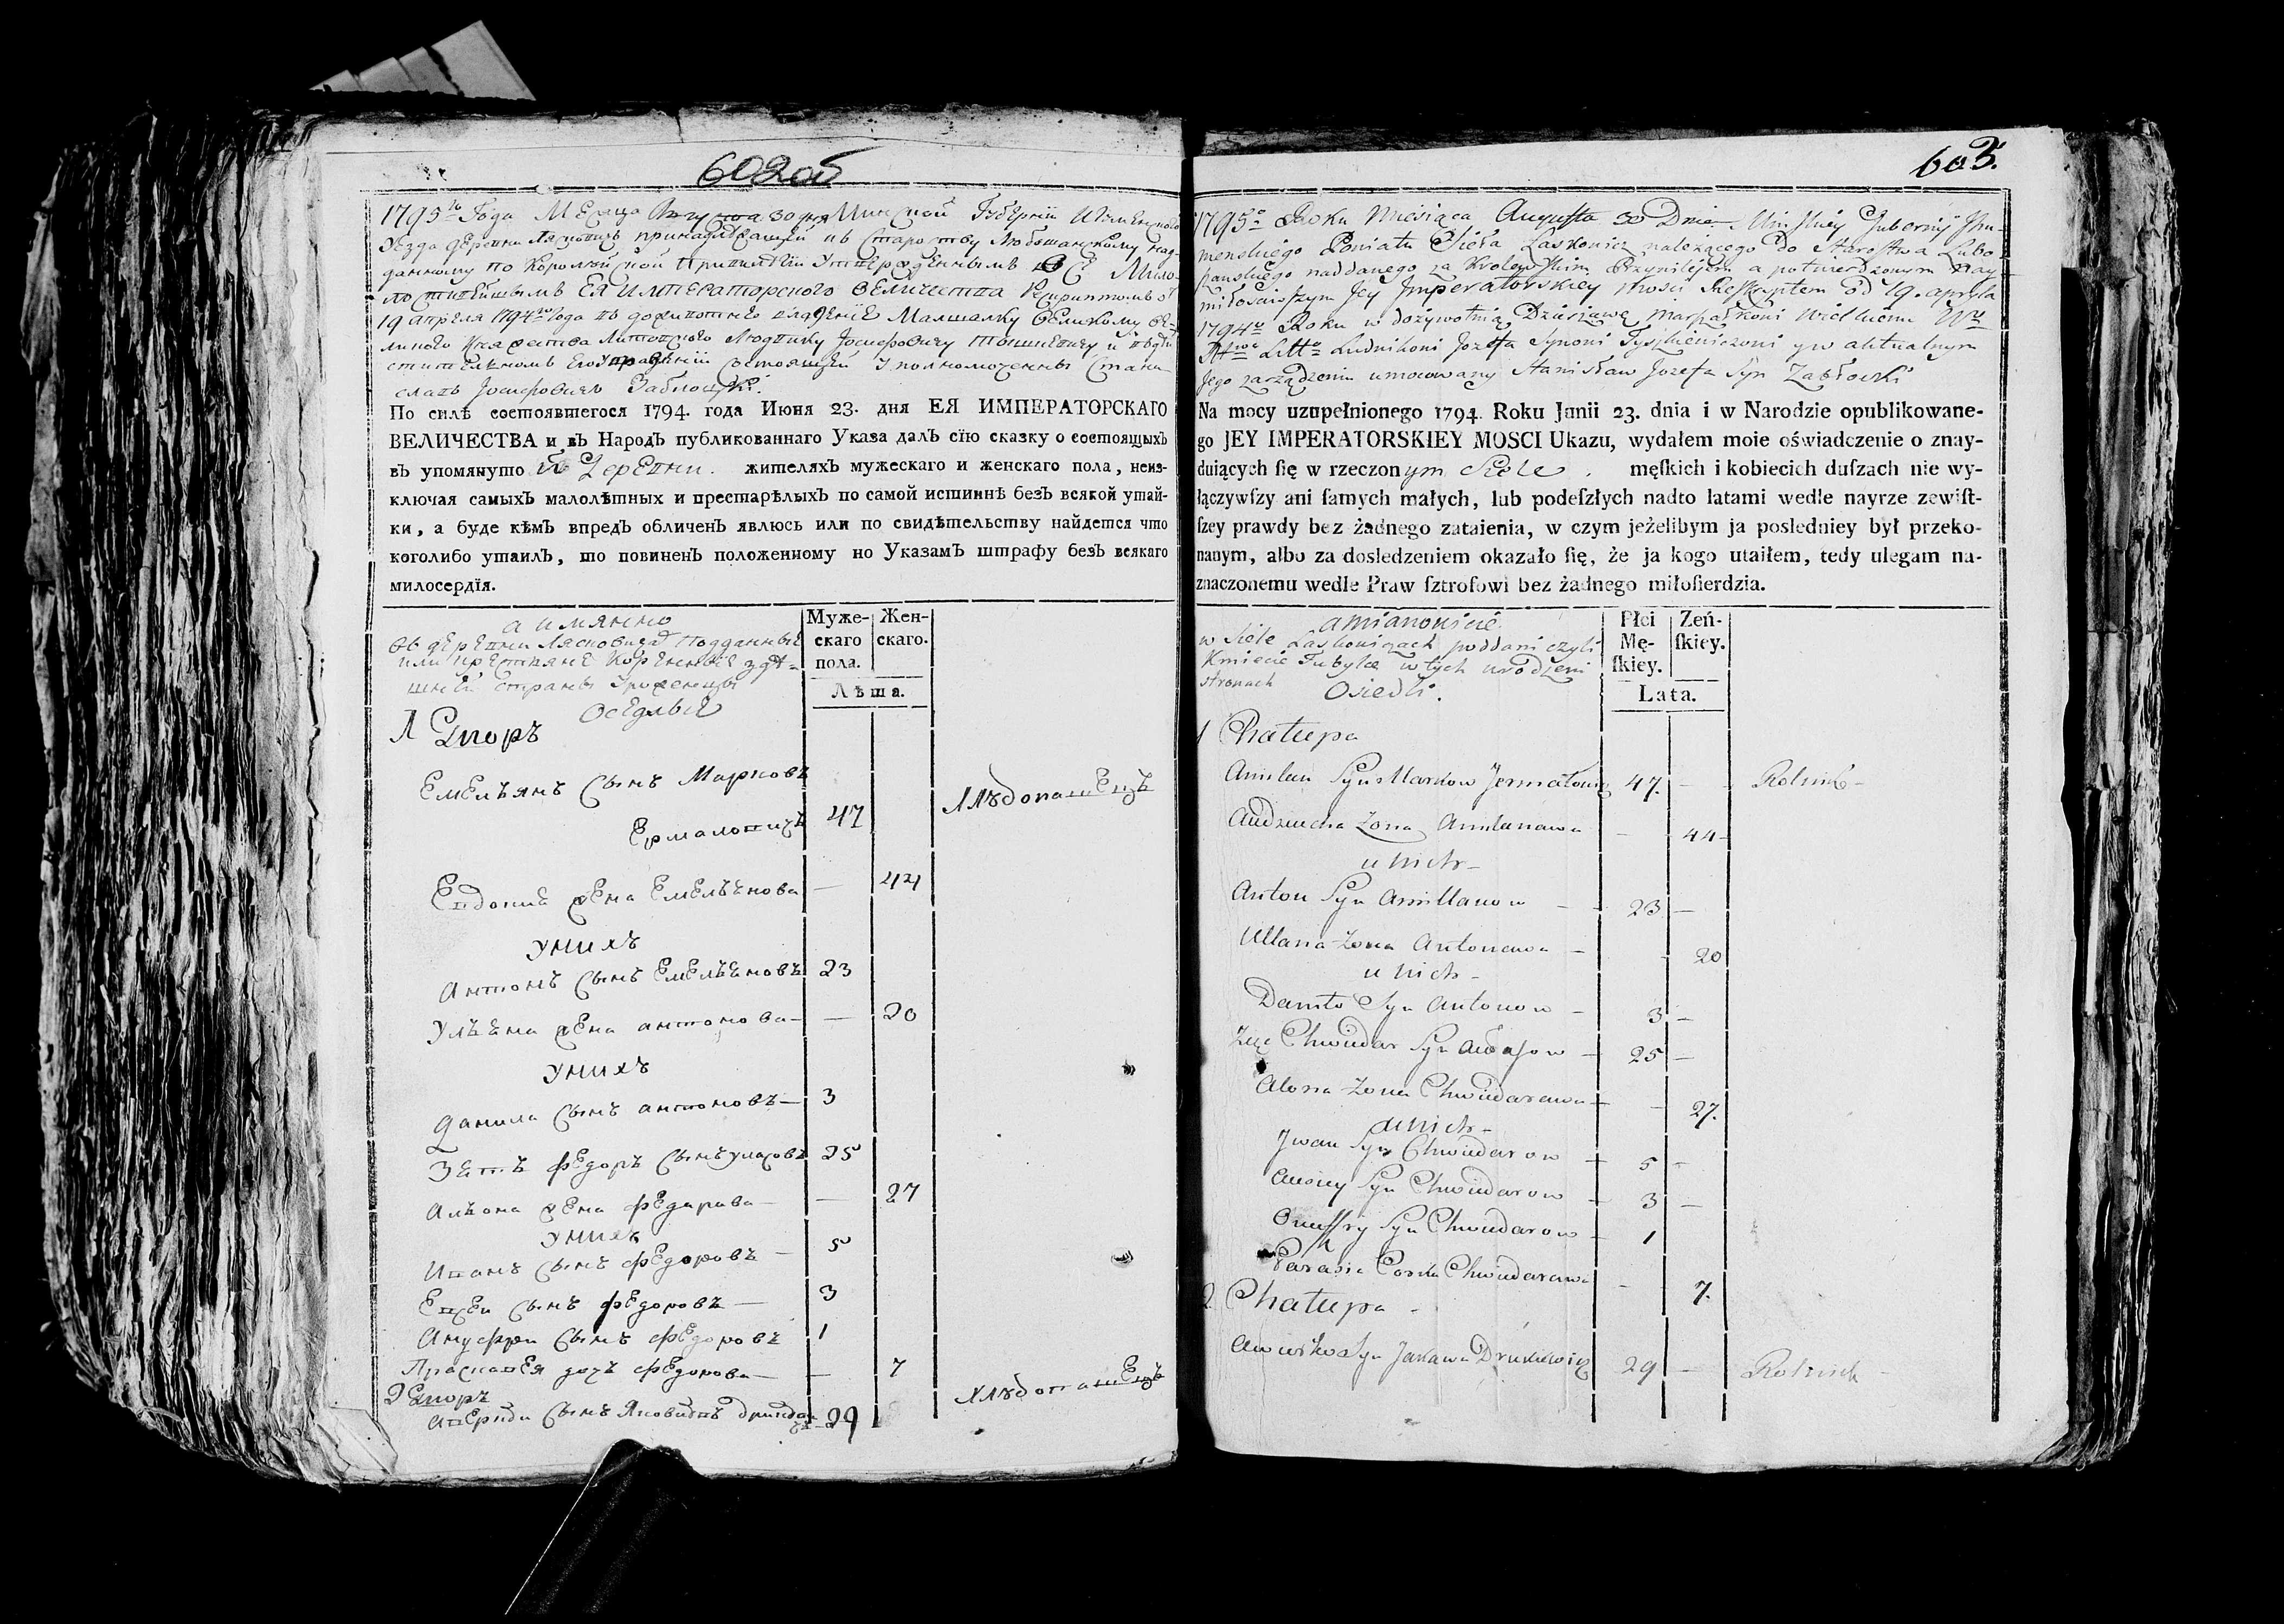 602об
1795го Года Месяца Августа 30 дня Минской Губернии Игуменского
Уезда деревни Лясковичь принадлежащей къ Староству Любошанскому над-
данному по Королевской Привилегии Утвержденнымъ ВСЕ Мило-
лостивейшымъ ЕЯ ИМПЕраторского ВЕЛИЧества Рескриптомъ от
19 апреля 1794го Года въ дожывотнее владение Маршалку Великому Ве-
ликого Княжества Литовского Людвику Иосифовичу Тышкевичу и въ дей
ствительномъ Его Управлении состоящей Уполномоченны Стани
славъ Иосифовичъ Заблоцкй.
По силѣ состоявшегося 1794. года Июня 23. дня ЕЯ ИМПЕРАТОРСКАГО
ВЕЛИЧЕСТВА и въ Народъ публикованнаго Указа далъ сїю сказку о состоящыхъ
въ упомянуто й Деревни. жителяхъ мужескаго и женскаго пола, неиз-
ключая самыхъ малолѣтныхъ и престарѣлыхъ по самой истиннѣ безъ всякой утай-
ки, а буде кѣмъ впредъ обличенъ явлюсь или по свидѣтельству найдется что
коголибо утаилъ, то повиненъ положенному но Указамъ штрафу безъ всякаго
милосердїя.
а имянно
въ деревни Лясковичах Подданные
или крестяне Коренные здѣ-
шней страны Уроженцы
Оседлые
Муже-
скаго
пола.
Жен-
скаго.
Лѣта.
1 Дворъ
Емельянъ Сынъ Марковъ
Ермаловичъ 47 Хлѣбопашецъ
Евдокия жена Емельянова — 44
У нихъ
Антонъ Сынъ Емельяновъ 23
Ульяна жена антонова — 20
У нихъ
Данила Сынъ антоновъ — 3
Зять Федоръ Сынъ 25
Альона жена Федарава — 27
У нихъ
Иванъ Сынъ Федоровъ — 5
Евсеи Сынъ Федоровъ — 3
Ануфри Сынъ Федоровъ 1
Прасковея дочъ Федорова — 7
2 Дворъ
Сынъ 29 Хлѣбопашецъ
603.
1795o Roku Miesiąca Augusta 30 Dnia Minskiey Guberniy Ihu-
menskiego Powiatu Sieła Laskowicz należącego do Starostwa Lubo
szanskiego naddanego za Krolewskim Przywilejem a potwierdzonym nay
miłosciwszym Jey Imperatorskiey Mosci Reskryptem od 19. apryla
1794o Roku w dożywotnią Dzierżawę Marszałkowi Wielkiemu Wo
Litto Ludwikowi Jozefa Synowi Tyszkiewiczowi y w aktualnym
Jego zarządzeniu umocowany Stanisław Jozefa Syn Zabłocki
Na mocy uzupełnionego 1794. Roku Junii 23. dnia i w Narodzie opublikowane-
go JEY IMPERATORSKIEY MOSCI Ukazu, wydałem moie oświadczenie o znay-
duiących ſię w rzeczonym Siele. męſkich i kobiecich duſzach nie wy-
łączywſzy ani ſamych małych, lub podeſzłych nadto latami wedle nayrze zewiſt-
ſzey prawdy bez żadnego zataienia, w czym jeżelibym ja posledniey był przeko-
nanym, albo za dosledzeniem okazało ſię, że ja kogo utaiłem, tedy ulegam na-
znaczonemu wedle Praw ſztrofowi bez żadnego miłoſierdzia.
a mianowicie
w Siele Laskowiczach poddani czyli
Kmiecie Tubylce w tych urodzeni
stronach Osiedli.
Płci
Mę-
ſkiey.
Zeń-
ſkiey.
Lata.
1 Chatupa
Amilan Syn Markow Jermałowicz 47. — Rolnik
Audziucha Zona Amilanawa — 44
u nich
Anton Syn Amillanow — 23 —
Ullana Zona Antonowa — 20
u nich
Daniło Syn Antonow — 3 —
Zięć Chwiedar Syn — 25 —
Alona Zona Chwiedarawa — 27.
u nich
Jwan Syn Chwiedarow — 5 —
Ausiey Syn Chwiedarow — 3 —
Onuffry Syn Chwiedarow — 1
Parasia Corka Chwiedarawa — 7.
2 Chatupa
Syn Jakawa 29 — Rolnick